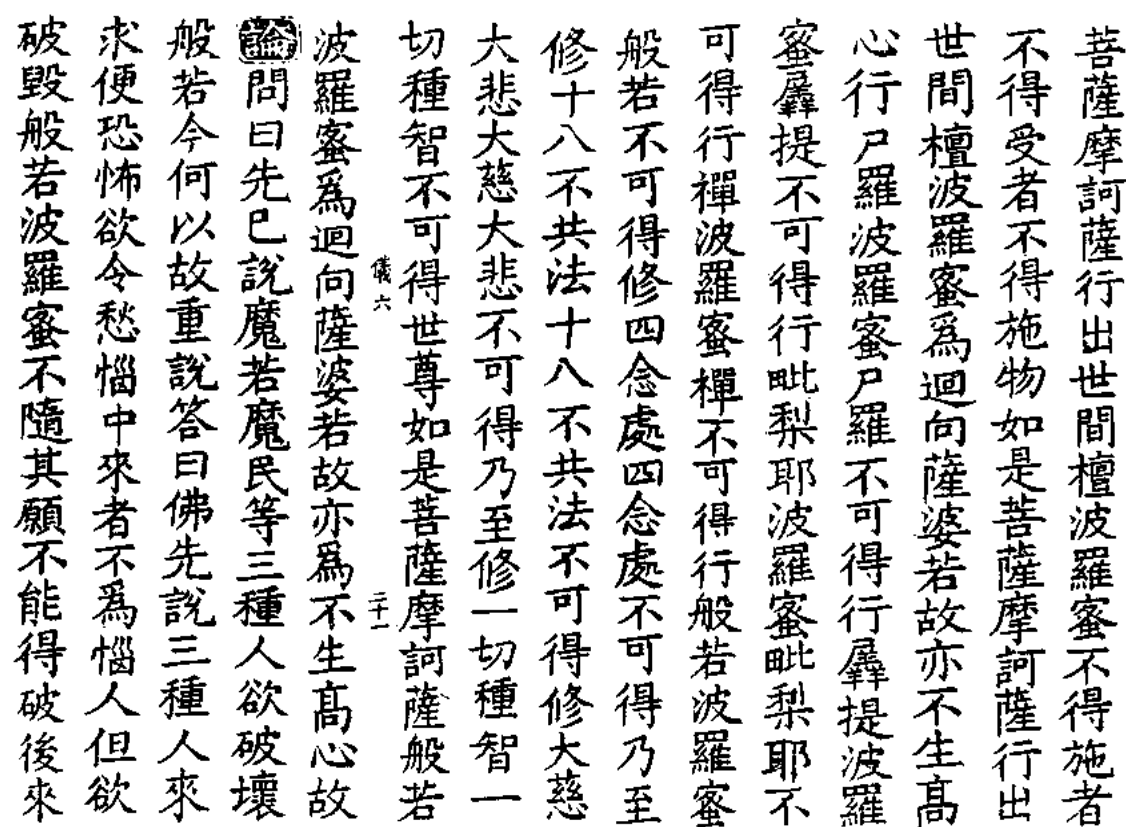 菩薩摩訶薩行出世間檀波羅蜜不得施者
不得受者不得施物如是菩薩摩訶薩行出
世間檀波羅蜜爲迴向薩婆若故亦不生高
心行尸羅波羅蜜尸羅不可得行羼提波羅
蜜羼提不可得行毗梨耶波羅蜜毗梨耶不
可得行禪波羅蜜禪不可得行般若波羅蜜
般若不可得修四念處四念處不可得乃至
修十八不共法十八不共法不可得修大慈
大悲大慈大悲不可得乃至修一切種智一
切種智不可得世尊如是菩薩摩訶薩般若
儀六 二十一
波羅蜜爲迴向薩婆若故亦爲不生高心故
論問曰先已說魔若魔民等三種人欲破壞
般若今何以故重說答曰佛先說三種人來
求便恐怖欲令愁惱中來者不爲惱人但欲
破毀般若波羅蜜不隨其願不能得破後來